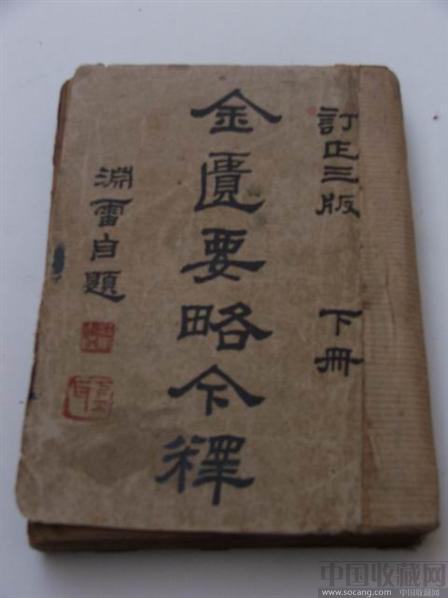 訂正三版 下冊
金匱要略今釋
淵雷自題
中国收藏网
www.socang.com